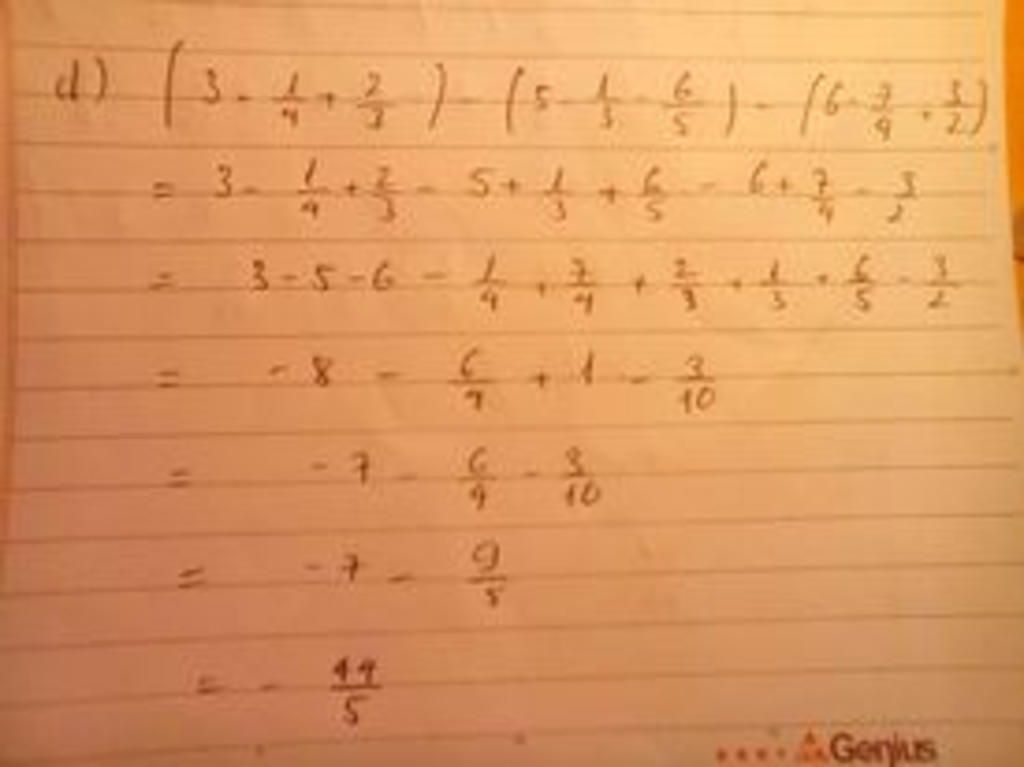 d) (3 - 1/4 + 2/3) - (5 - 1/3 - 6/5) - (6 - 7/4 + 3/2)
= 3 - 1/4 + 2/3 - 5 + 1/3 + 6/5 - 6 + 7/4 - 3/2
= 3 - 5 - 6 - 1/4 + 7/4 + 2/3 + 1/3 + 6/5 - 3/2
= - 8 - 6/4 + 1 - 3/10
= - 7 - 6/4 - 3/10
= - 7 - 9/5
= - 44/5
Genius